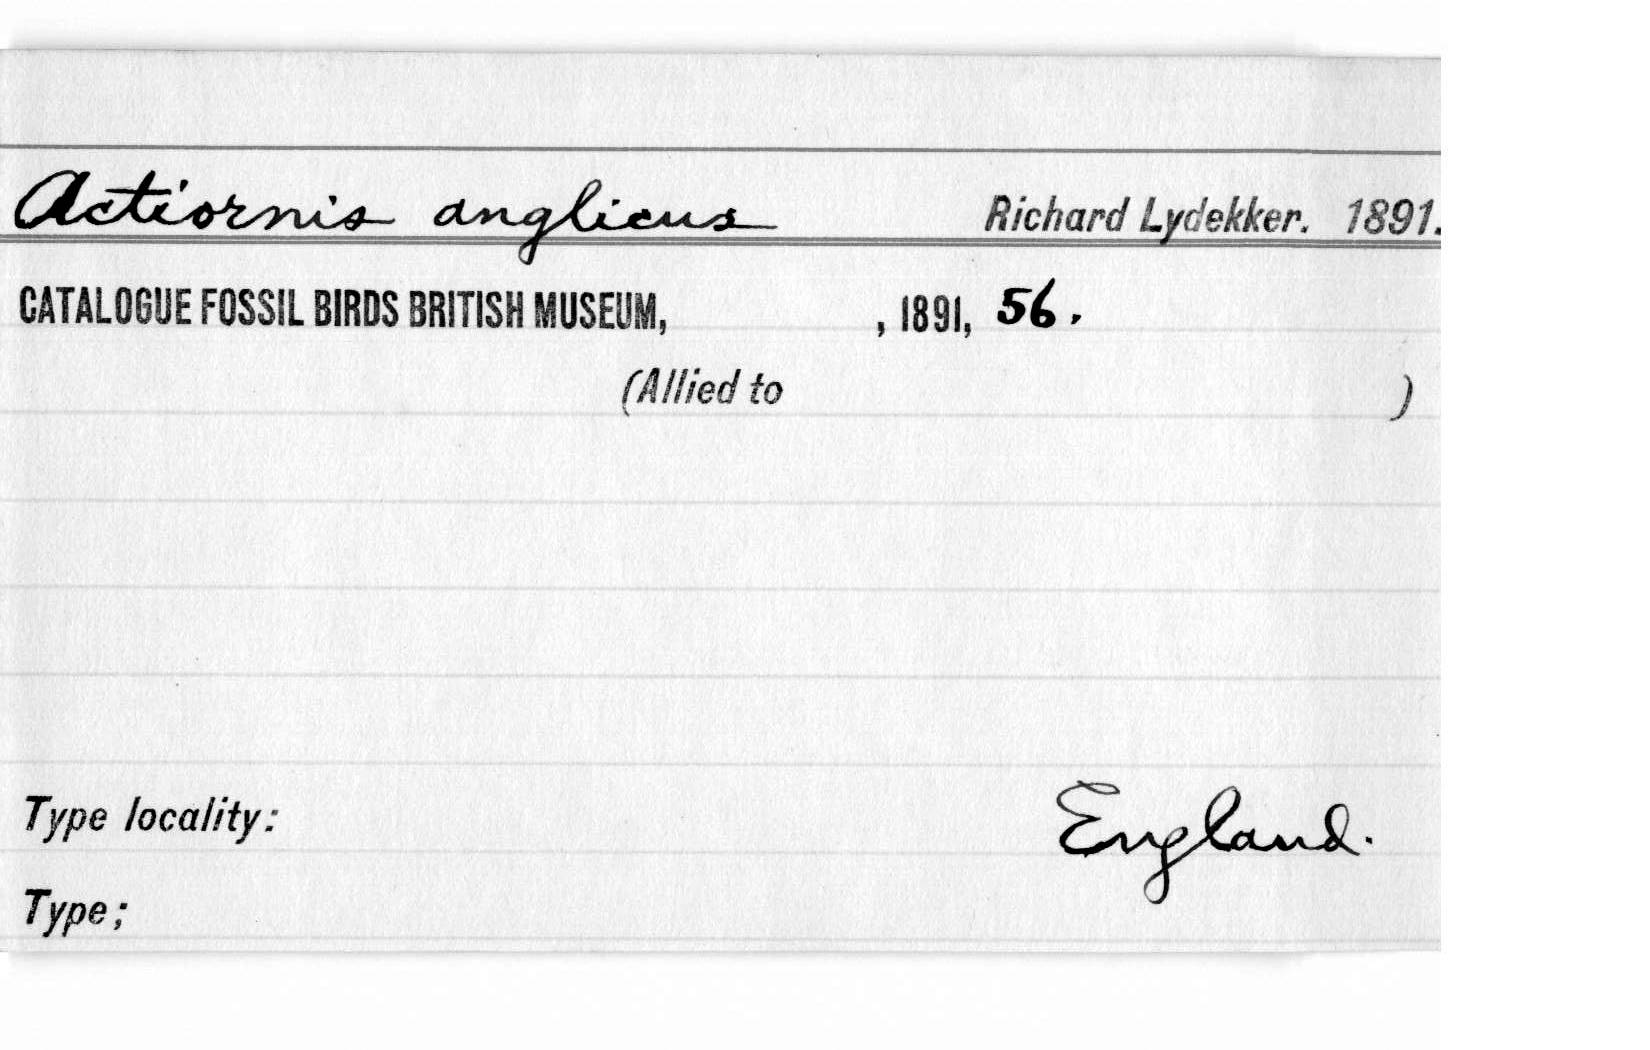 Actiornis anglicus Richard Lydekker. 1891.
CATALOGUE FOSSIL BIRDS BRITISH MUSEUM, , 1891, 56.
(Allied to )
Type locality: England.
Type;